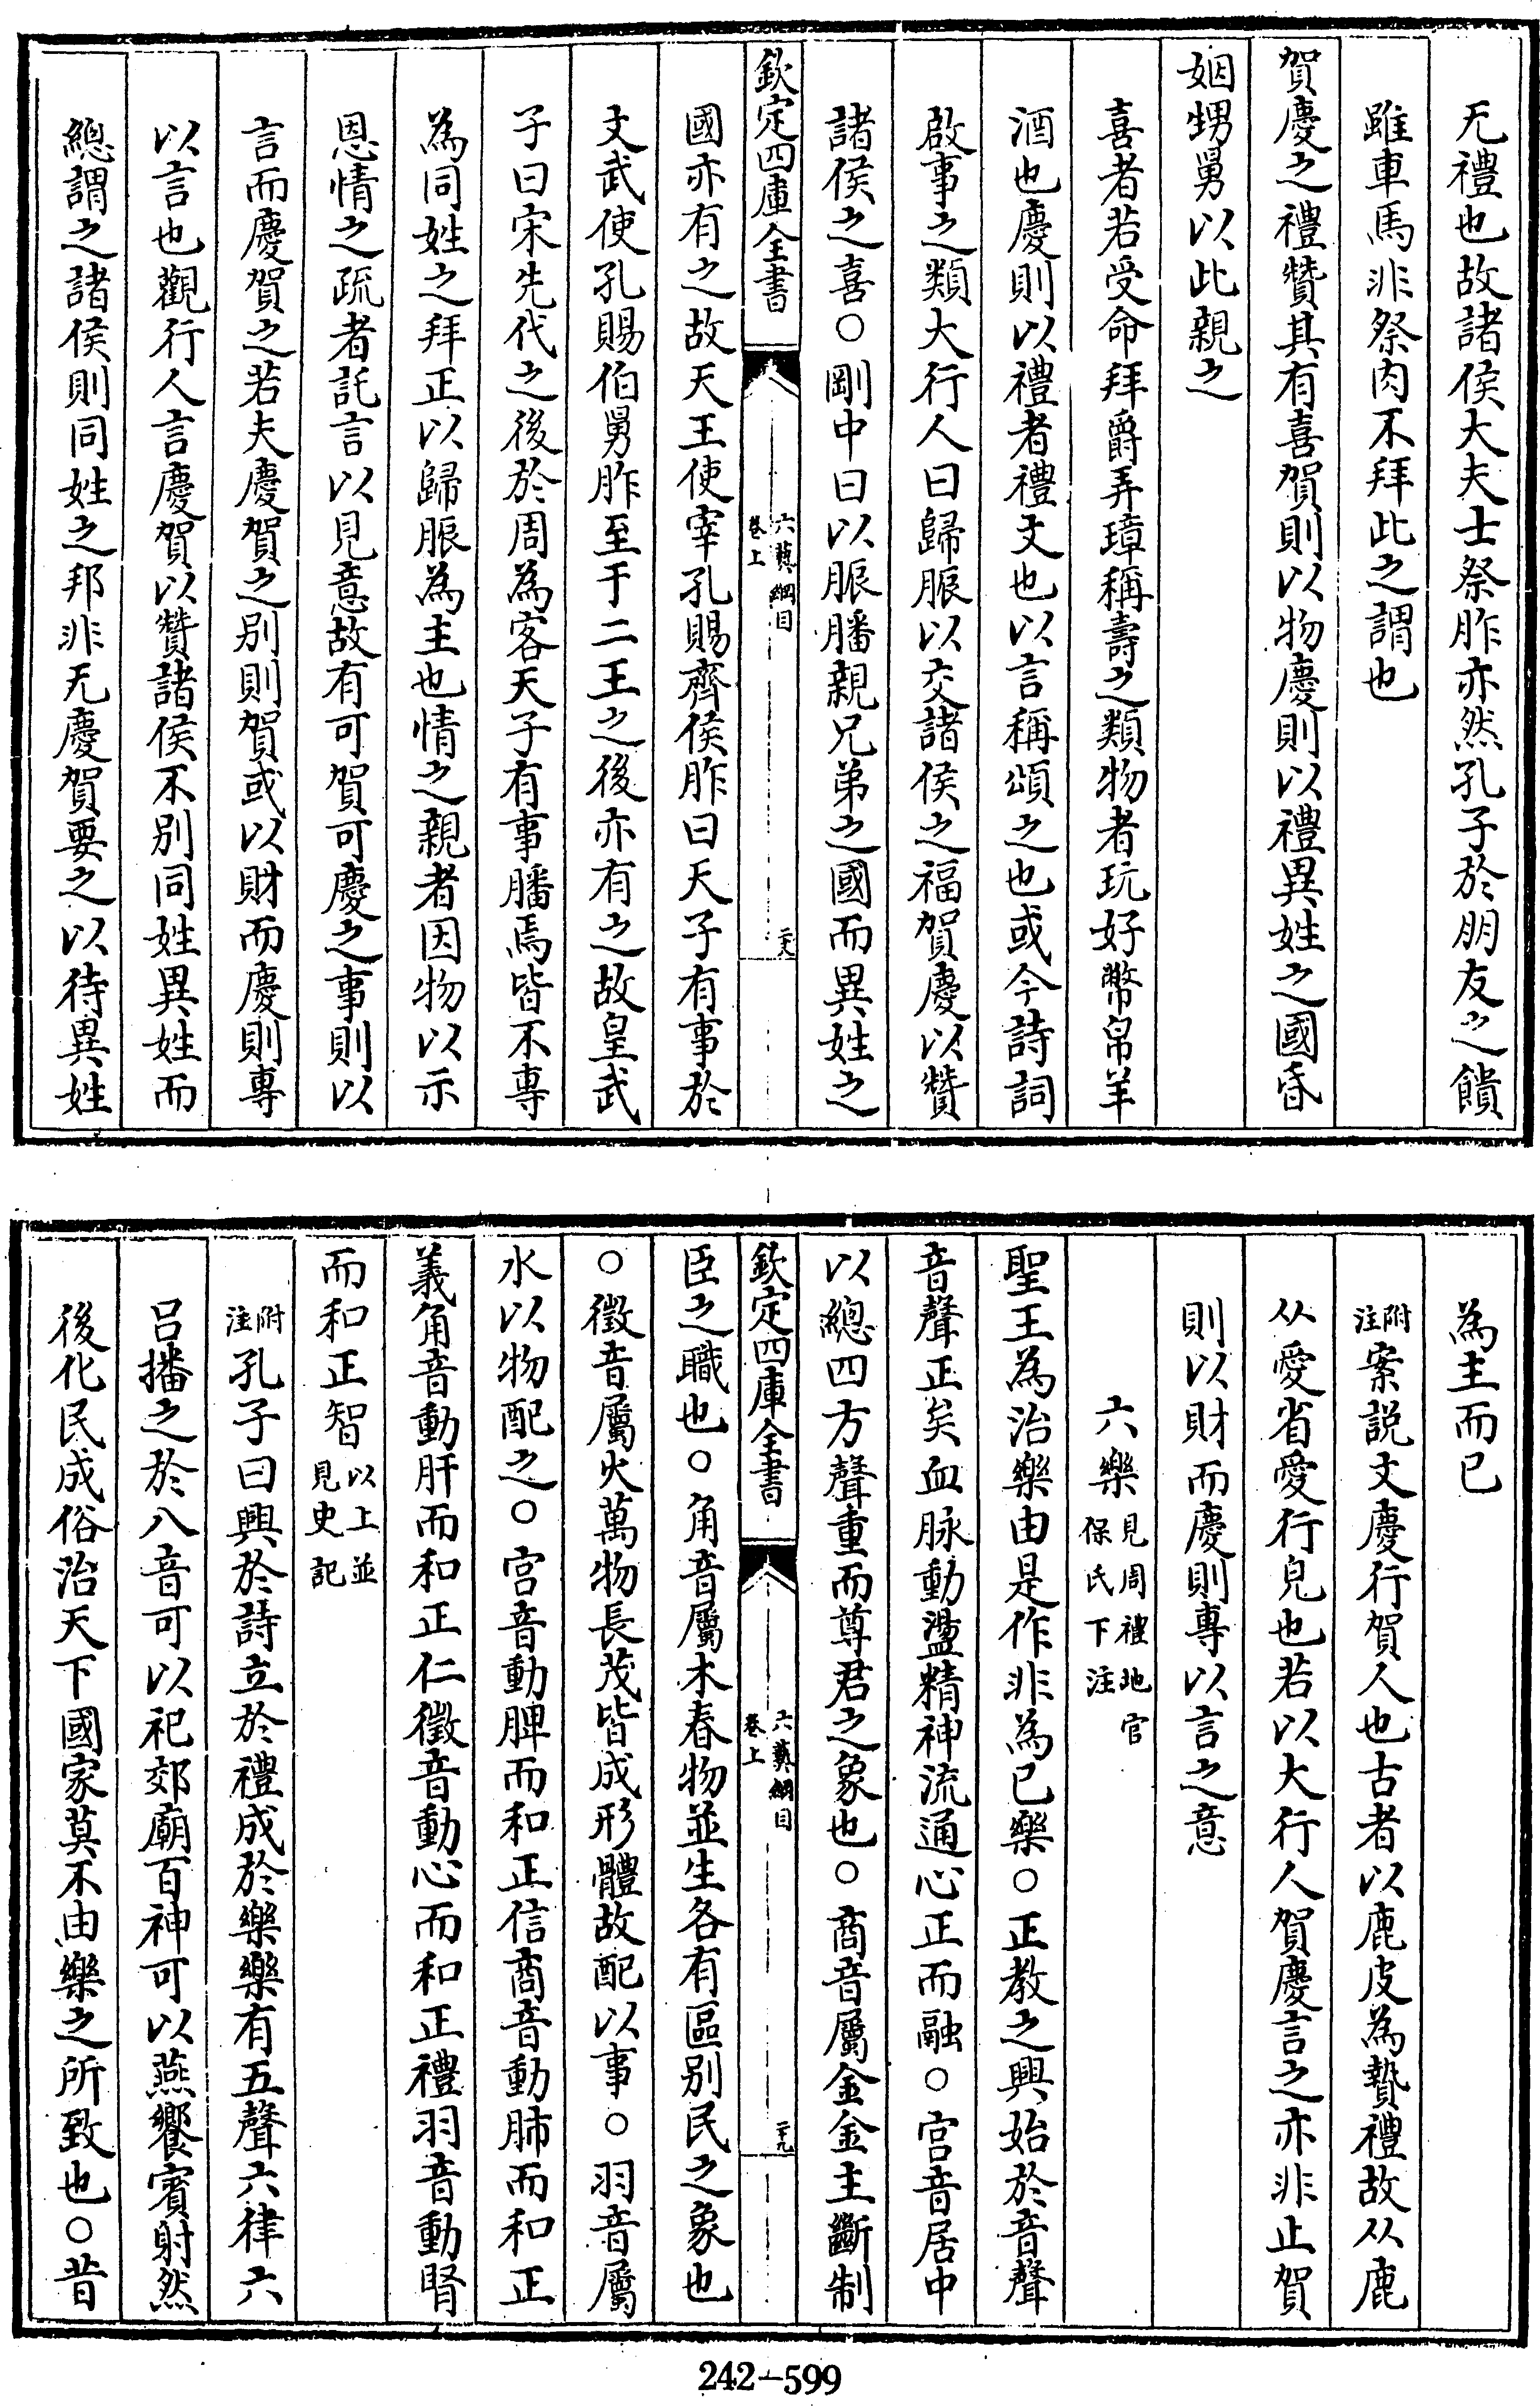 无禮也故諸侯大夫士祭胙亦然孔子於朋友之饋
雖車馬非祭肉不拜此之謂也
賀慶之禮贊其有喜賀則以物慶則以禮異姓之國昏
姻甥舅以此親之
喜者若受命拜爵弄璋稱壽之類物者玩好幣帛羊
酒也慶則以禮者禮文也以言稱頌之也或今詩詞
啟事之類大行人曰歸脤以交諸侯之福賀慶以贊
諸侯之喜○剛中曰以脤膰親兄弟之國而異姓之
欽定四庫全書
六藝綱目
卷上
二十八
國亦有之故天王使宰孔賜齊侯胙曰天子有事於
文武使孔賜伯舅胙至于二王之後亦有之故皇武
子曰宋先代之後於周為客天子有事膰焉皆不專
為同姓之拜正以歸脤為主也情之親者因物以示
恩情之疏者託言以見意故有可賀可慶之事則以
言而慶賀之若夫慶賀之别則賀或以財而慶則專
以言也觀行人言慶賀以贊諸侯不别同姓異姓而
總謂之諸侯則同姓之邦非无慶賀要之以待異姓
為主而已
附注案説文慶行賀人也古者以鹿皮為贄禮故从鹿
从愛省愛行皃也若以大行人賀慶言之亦非止賀
則以財而慶則專以言之意
六樂見周禮地官保氏下注
聖王為治樂由是作非為已樂○正教之興始於音聲
音聲正矣血脉動盪精神流通心正而融○宫音居中
以總四方聲重而尊君之象也○商音屬金金主斷制
欽定四庫全書
六藝綱目
卷上
二十九
臣之職也○角音屬木春物並生各有區别民之象也
○徵音屬火萬物長茂皆成形體故配以事○羽音屬
水以物配之○宫音動脾而和正信商音動肺而和正
義角音動肝而和正仁徵音動心而和正禮羽音動腎
而和正智以上並見史記
附注孔子曰興於詩立於禮成於樂樂有五聲六律六
吕播之於八音可以祀郊廟百神可以燕饗賓射然
後化民成俗治天下國家莫不由樂之所致也○昔
242-599